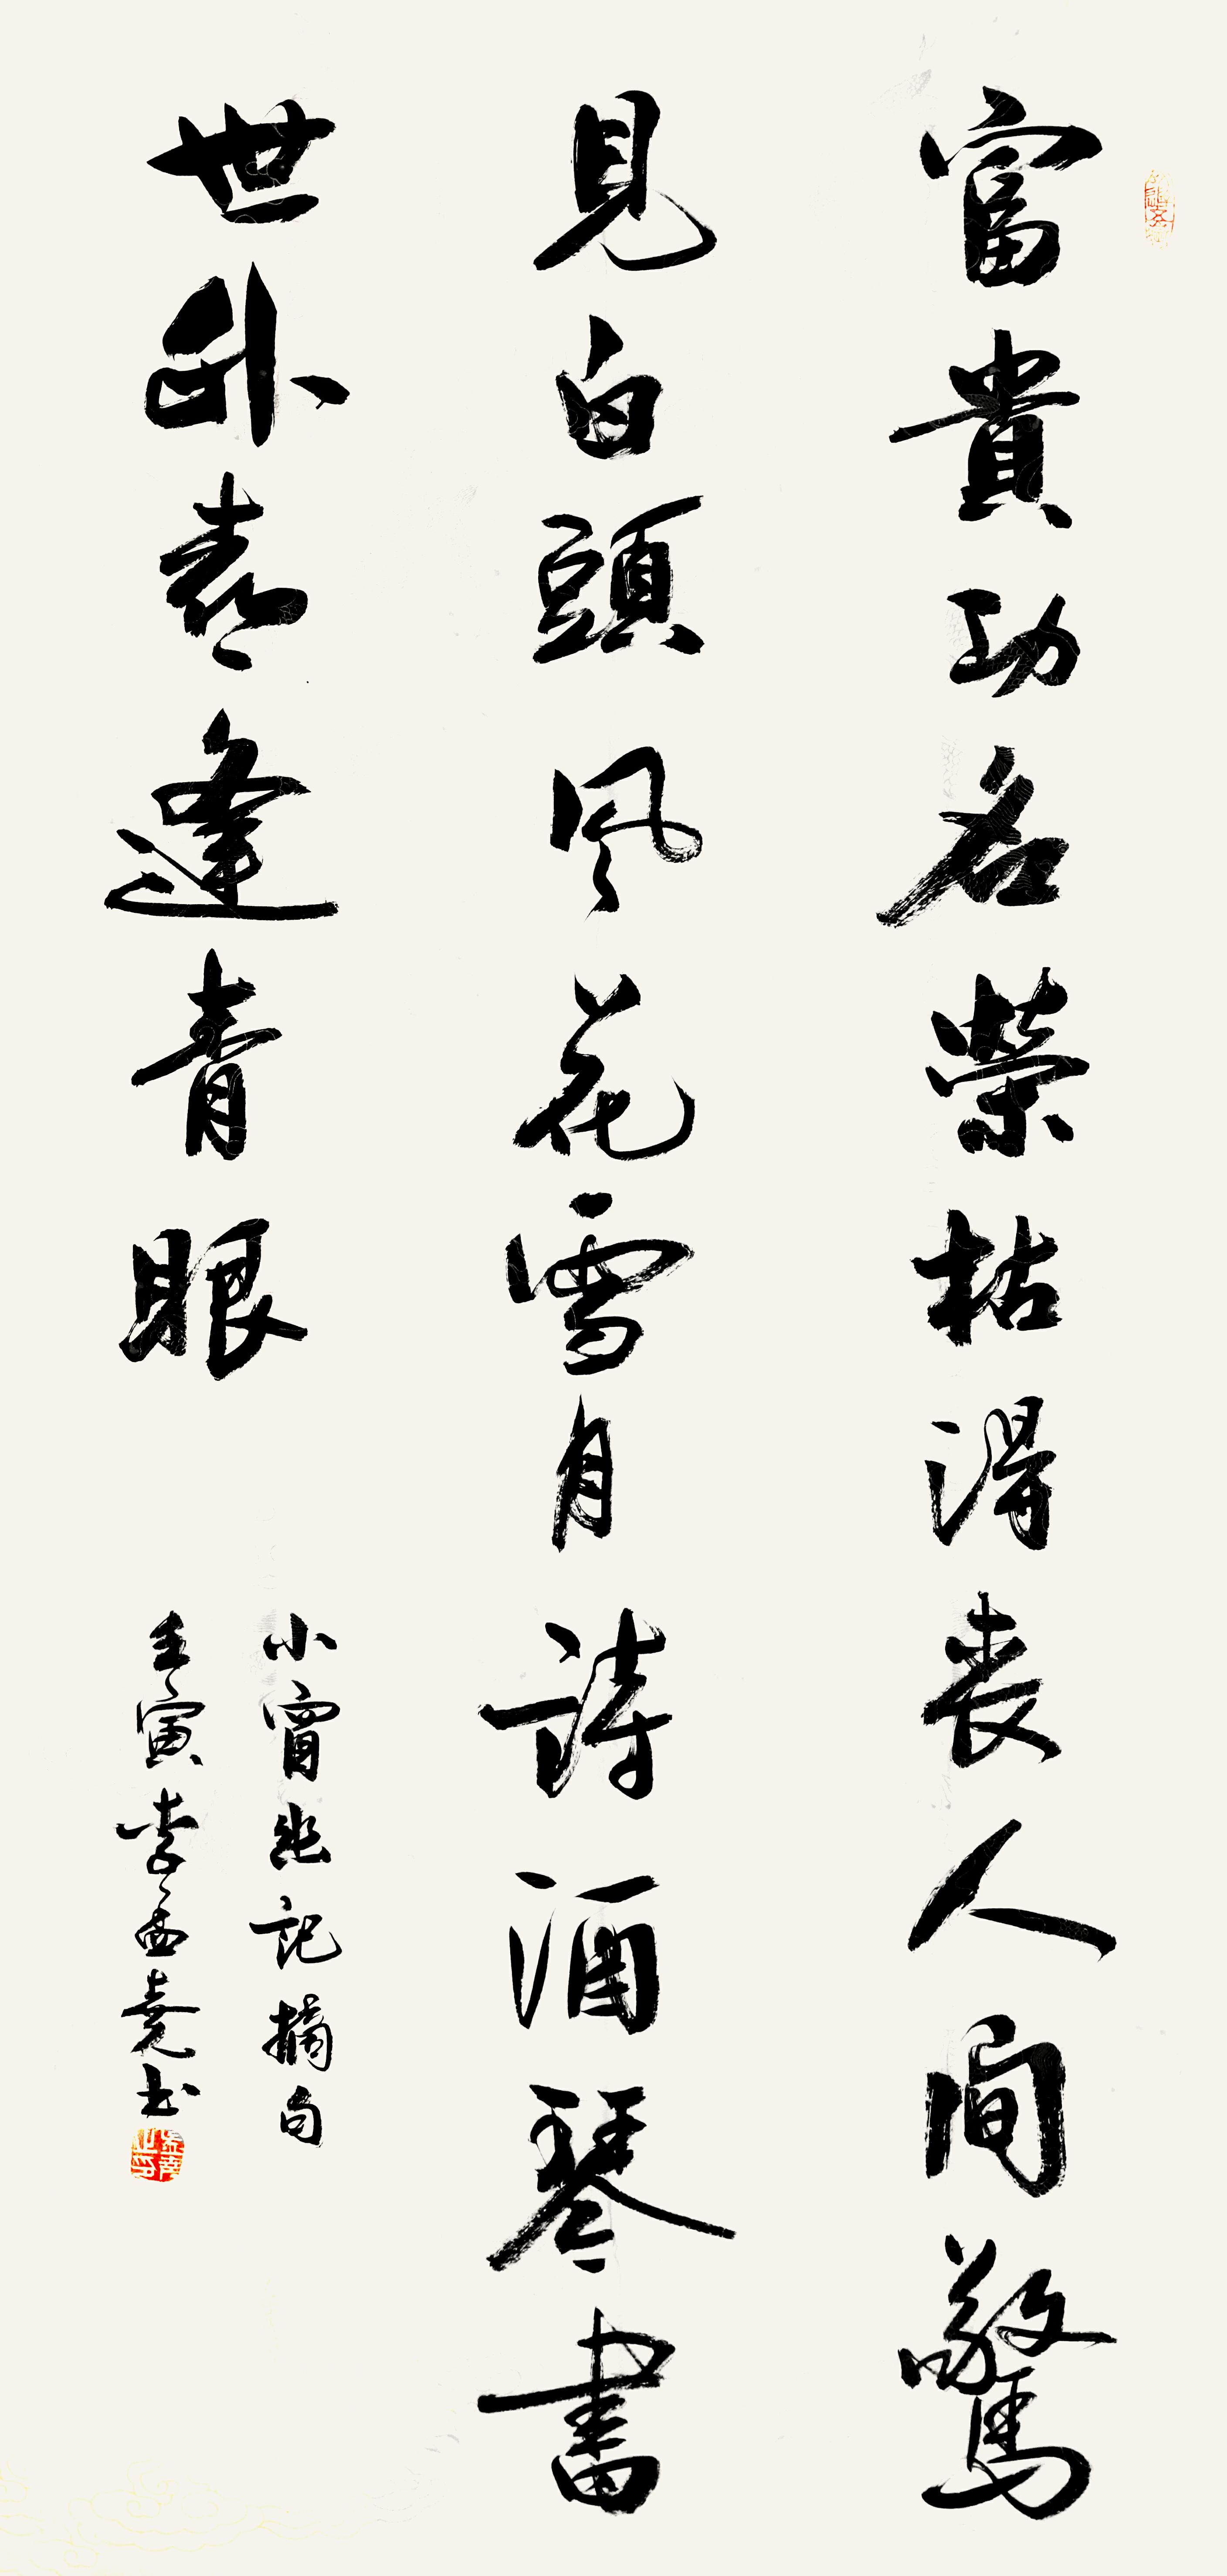 富貴功名榮枯得喪人間驚
見白頭風花雪月詩酒琴書
世外喜逢青眼
小窗幽記摘句
壬寅李孟堯书